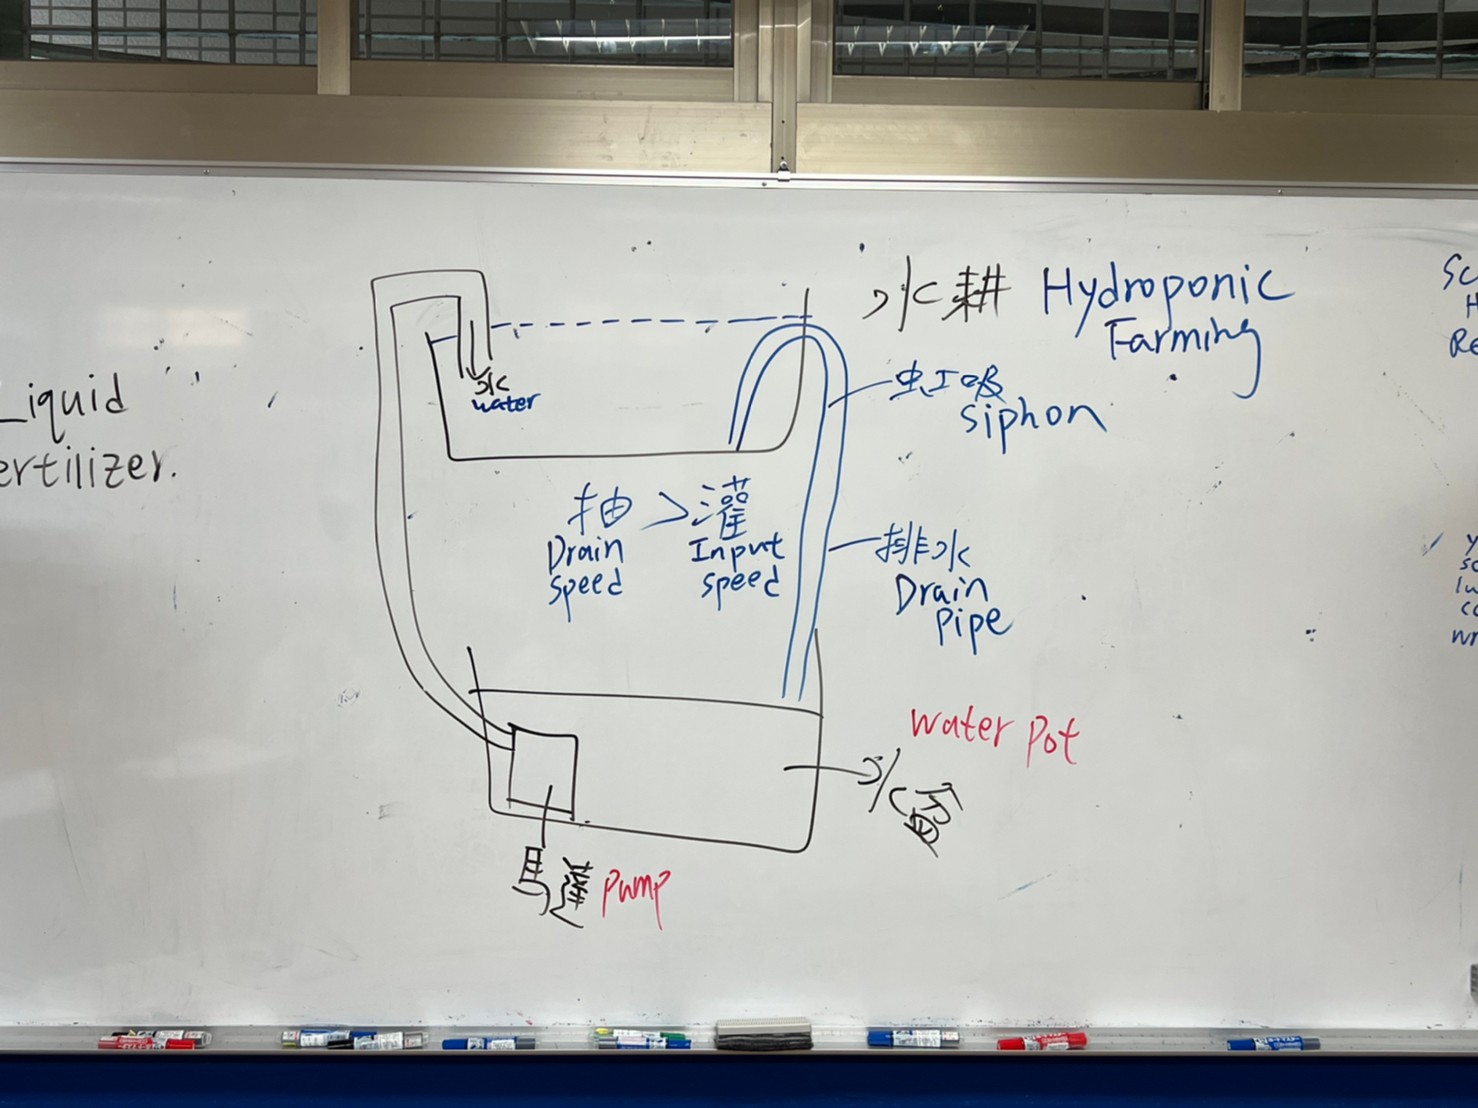 水耕 Hydroponic
Farming
水
water
虹吸
siphon
抽 > 灌
Drain Input
speed speed
排水
Drain
Pipe
Liquid
ertilizer.
water Pot
水盆
馬達 Pump